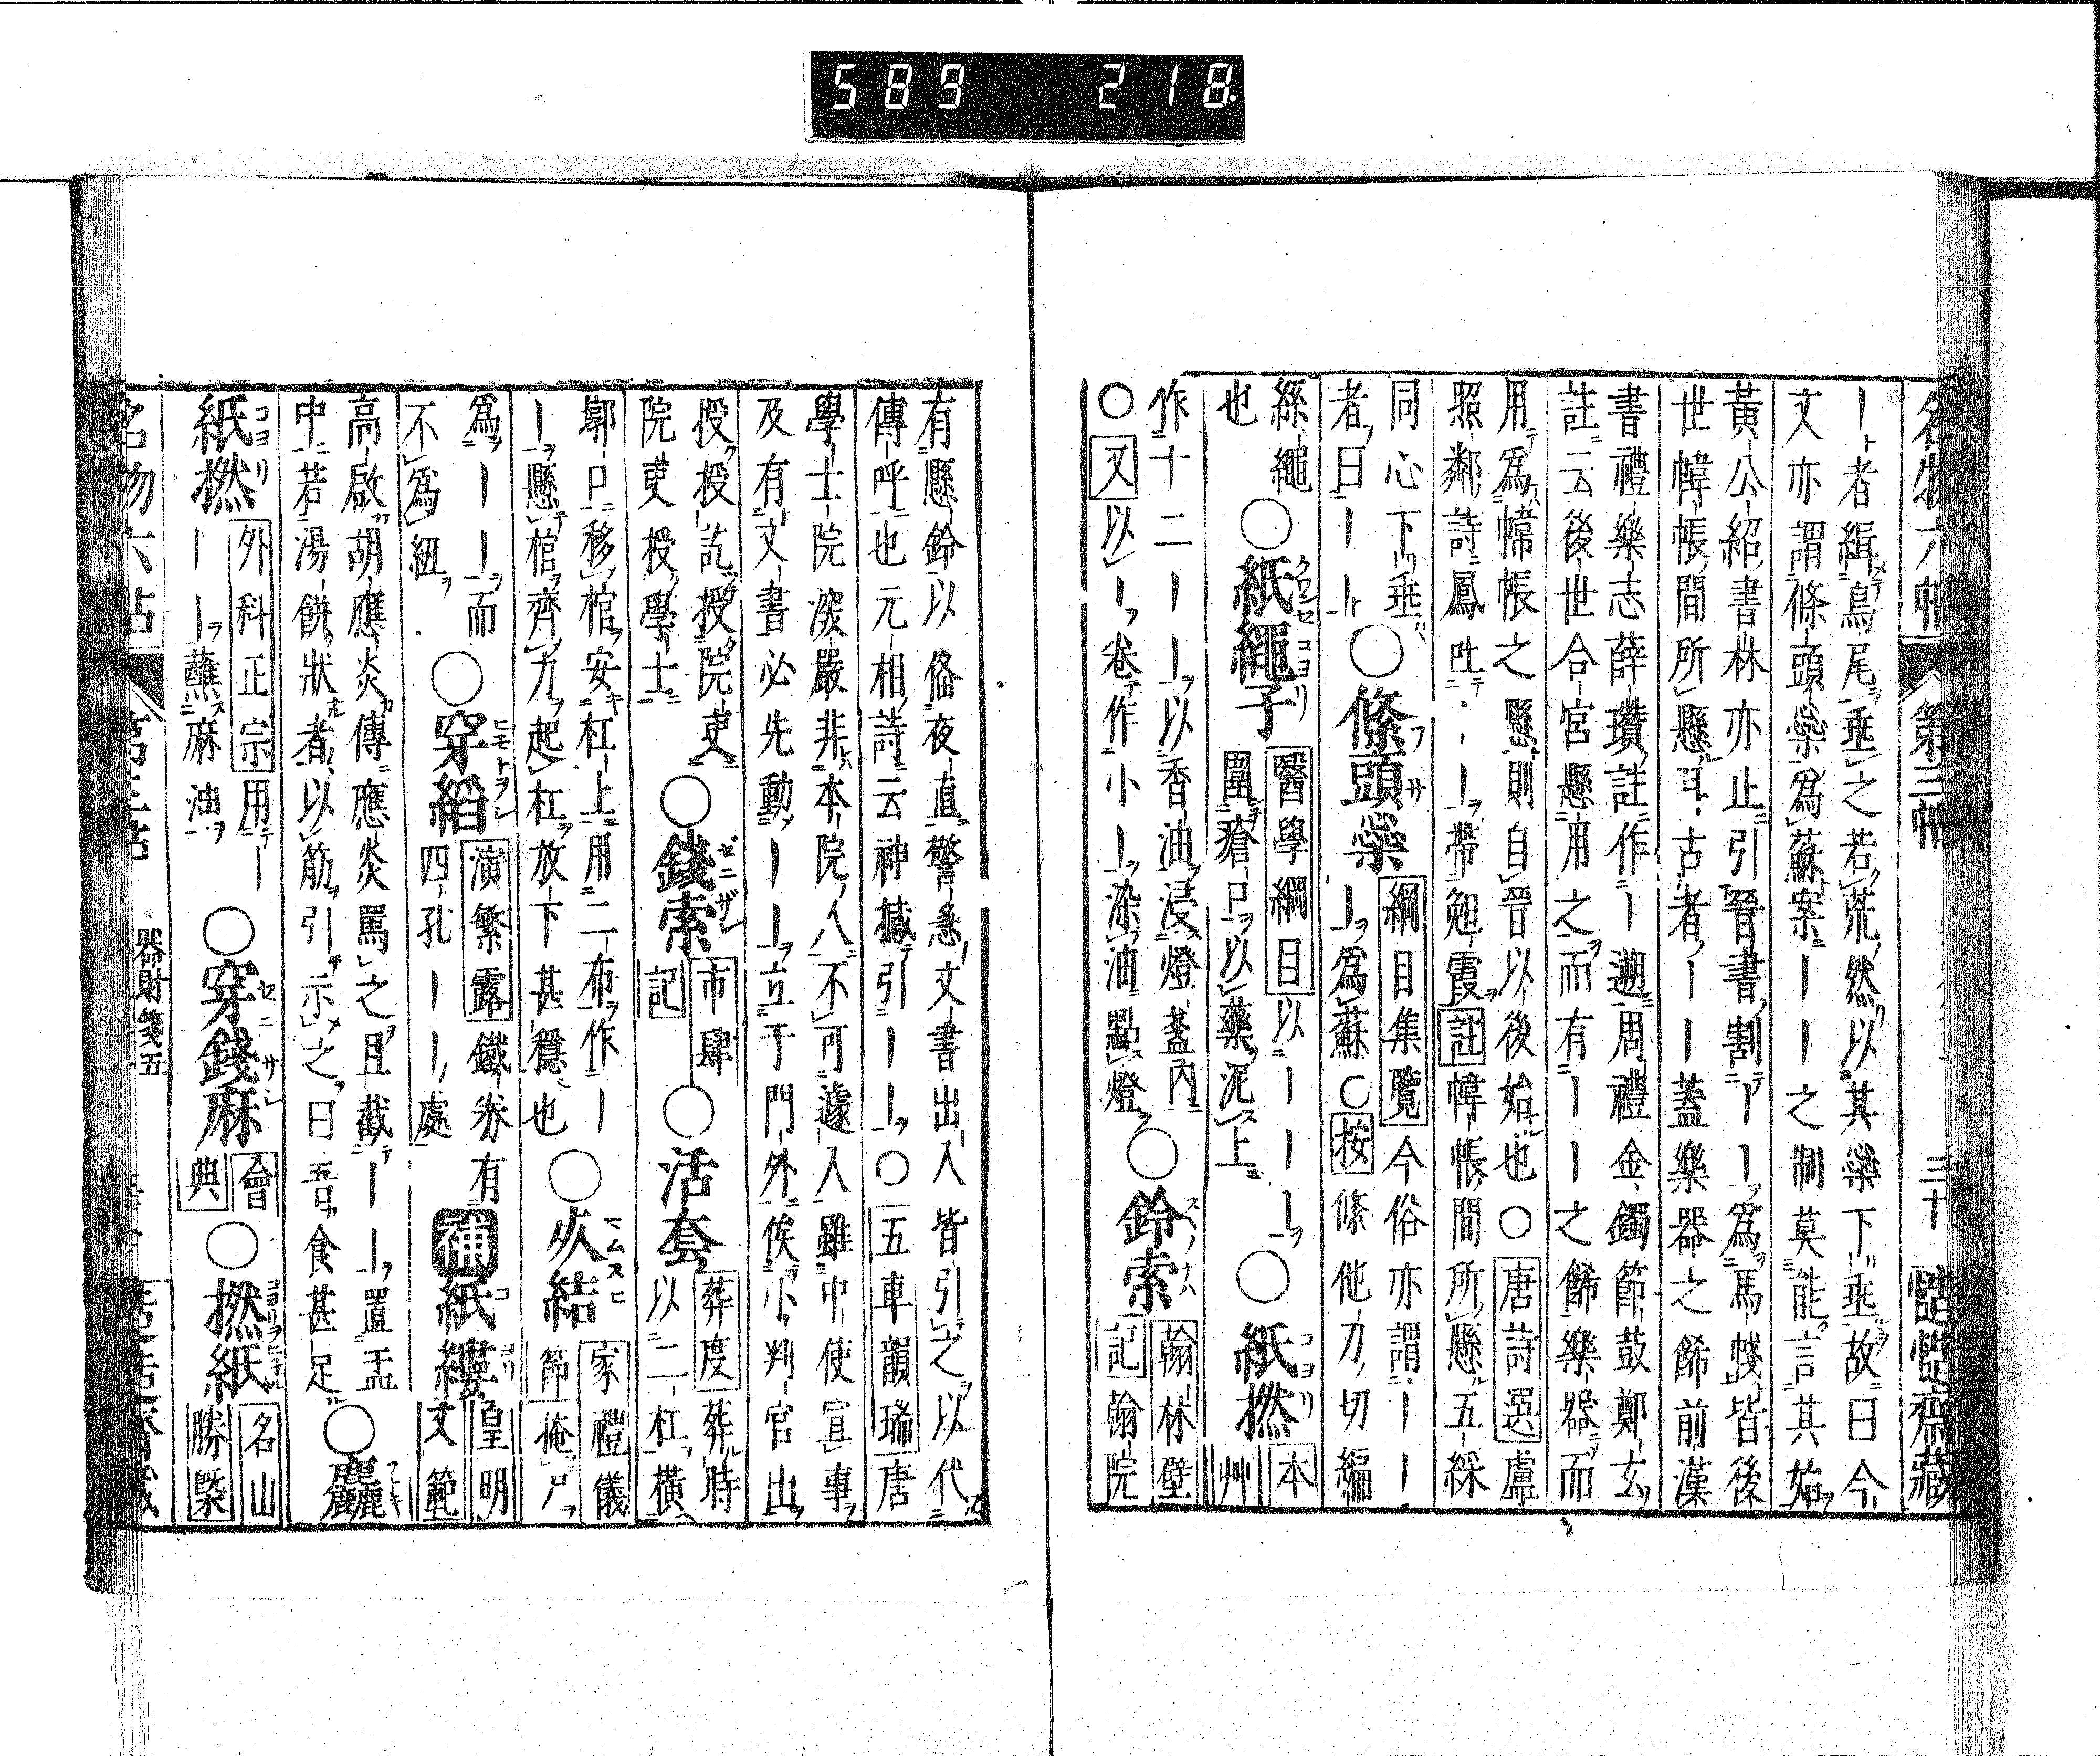 589 218
名物六帖 第三帖 三十 慥慥齋藏
｜者緝鳥尾垂之若流然以其橤下垂故曰今
文亦謂條頭橤爲蘇案｜｜之制莫能言其始
黃公紹書林亦止引晉書割｜｜爲馬帴皆後
世幃帳間所懸耳古者｜｜蓋樂器之餙前漢
書禮樂志薛瓚註作｜遡周禮金鐲節鼓鄭玄
註云後世合宮懸用之而有｜｜之餙樂器而
用爲幃帳之懸則自晉以後始也○唐詩選盧
照鄰詩鳳吐｜｜帶䞇霞註幃帳間所懸五綵
同心下垂
者曰｜｜○條頭橤
綱目集覽今俗亦謂｜｜
｜爲蘇○按絛他刀切編
絲繩
也○紙繩子
醫學綱目以｜｜｜
圍瘡口以藥泥上
○紙撚
本
艸
作十二｜｜以香油浸燈盞內
○又以｜卷作小｜染油點燈
○鈴索
翰林壁
記翰院
有懸鈴以俻夜直警急文書出入皆引之以代
傳呼也元相詩云神撼引｜｜○五車韻瑞唐
學士院深嚴非本院人不可遽入雖中使宣事
及有文書必先動｜｜立于門外俟小判官出
授授訖授院吏
院吏授學士
○錢索
市肆
記
○活套
葬度葬時
以二杠橫
墎口移棺安杠上用二布作｜
｜懸棺齊力起杠放下甚穩也
○㚒結
家禮儀
節掩尸
爲｜｜而
不爲紐
○穿縚
演繁露鐵券有
四孔｜｜處
補紙縷
皇明
文範
高啟胡應炎傳應炎罵之且截｜｜置盂
中若湯餅狀者以筋引示之曰吾食甚足
○麤
紙撚
外科正宗用｜
｜｜蘸麻油
○穿錢麻
會
典
○撚紙
名山
勝槩
名物六帖 第三帖 器財箋五